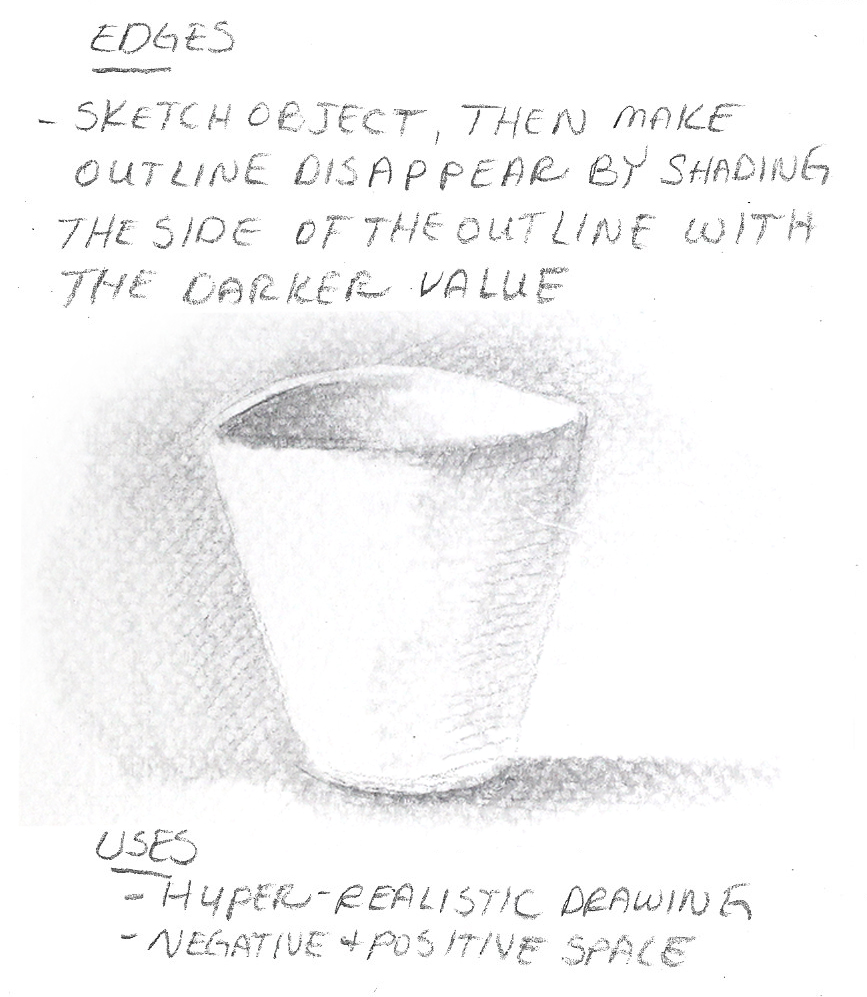 EDGES
- SKETCH OBJECT, THEN MAKE
OUTLINE DISAPPEAR BY SHADING
THE SIDE OF THE OUTLINE WITH
THE DARKER VALUE
USES
- HYPER-REALISTIC DRAWING
- NEGATIVE + POSITIVE SPACE